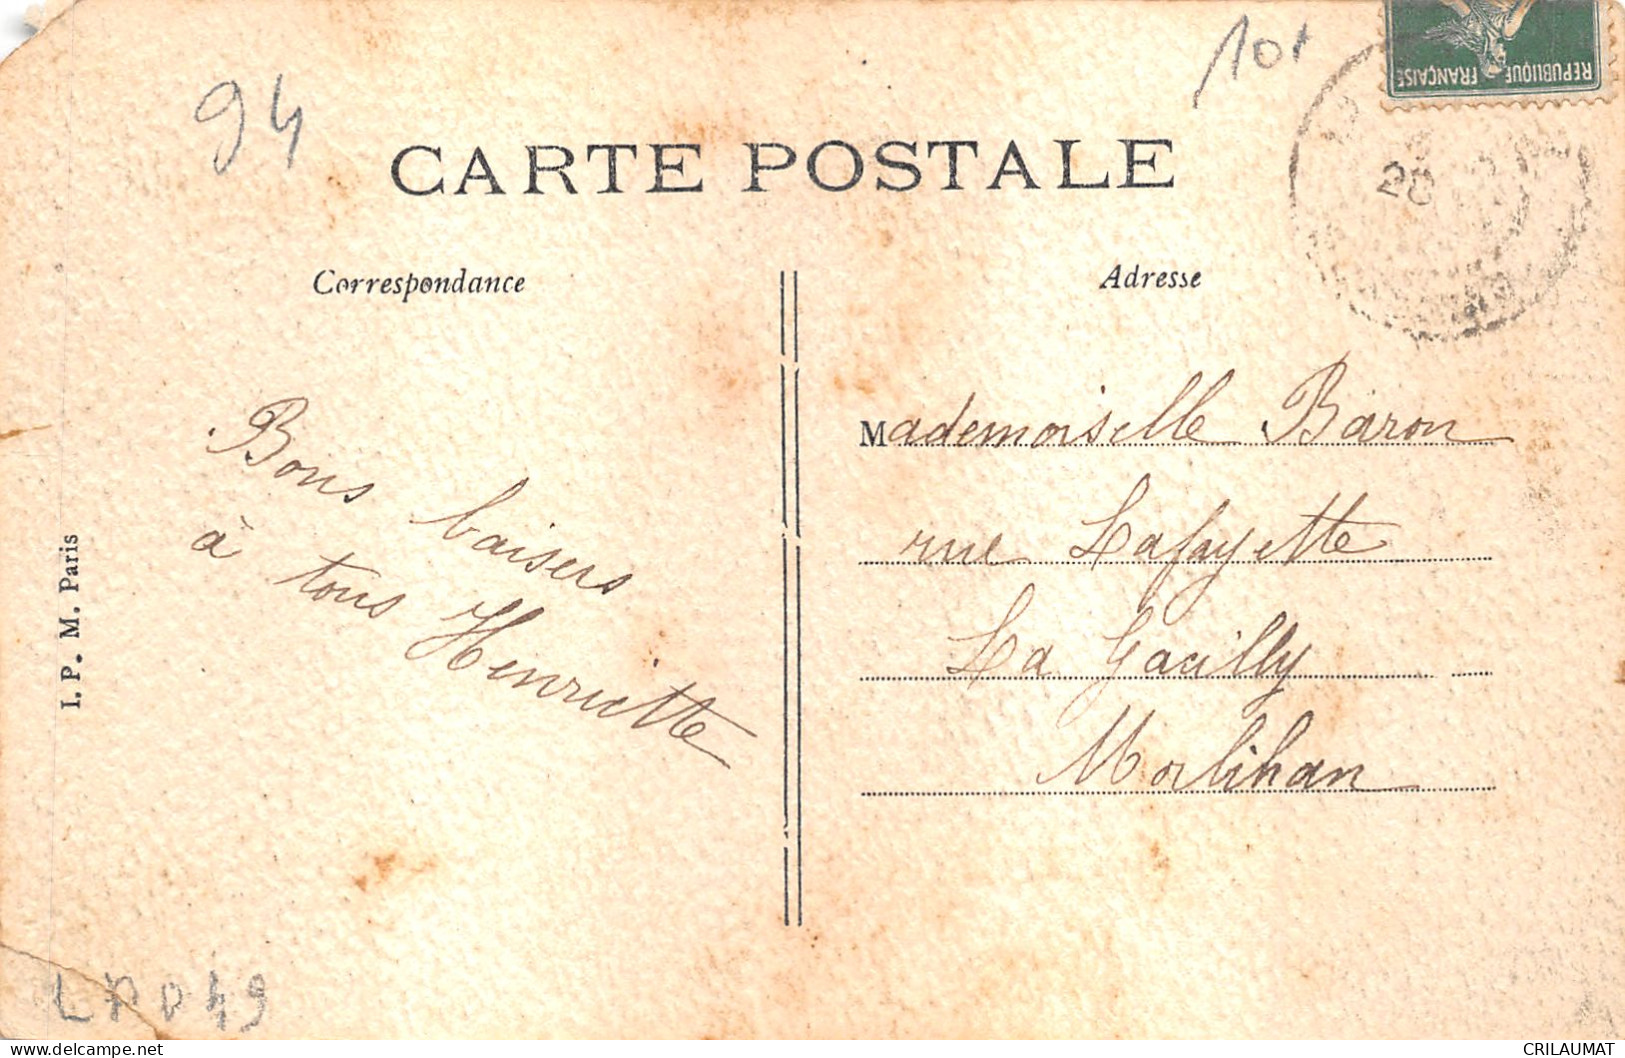 94
10+
REPUBLIQUE FRANÇAISE
CARTE POSTALE
Correspondance
Adresse
20
Bons baisers
à tous Henriette
Mademoiselle Baron
rue Lafayette
La Gacilly
Morbihan
I. P. M. Paris
CRILAUMAT